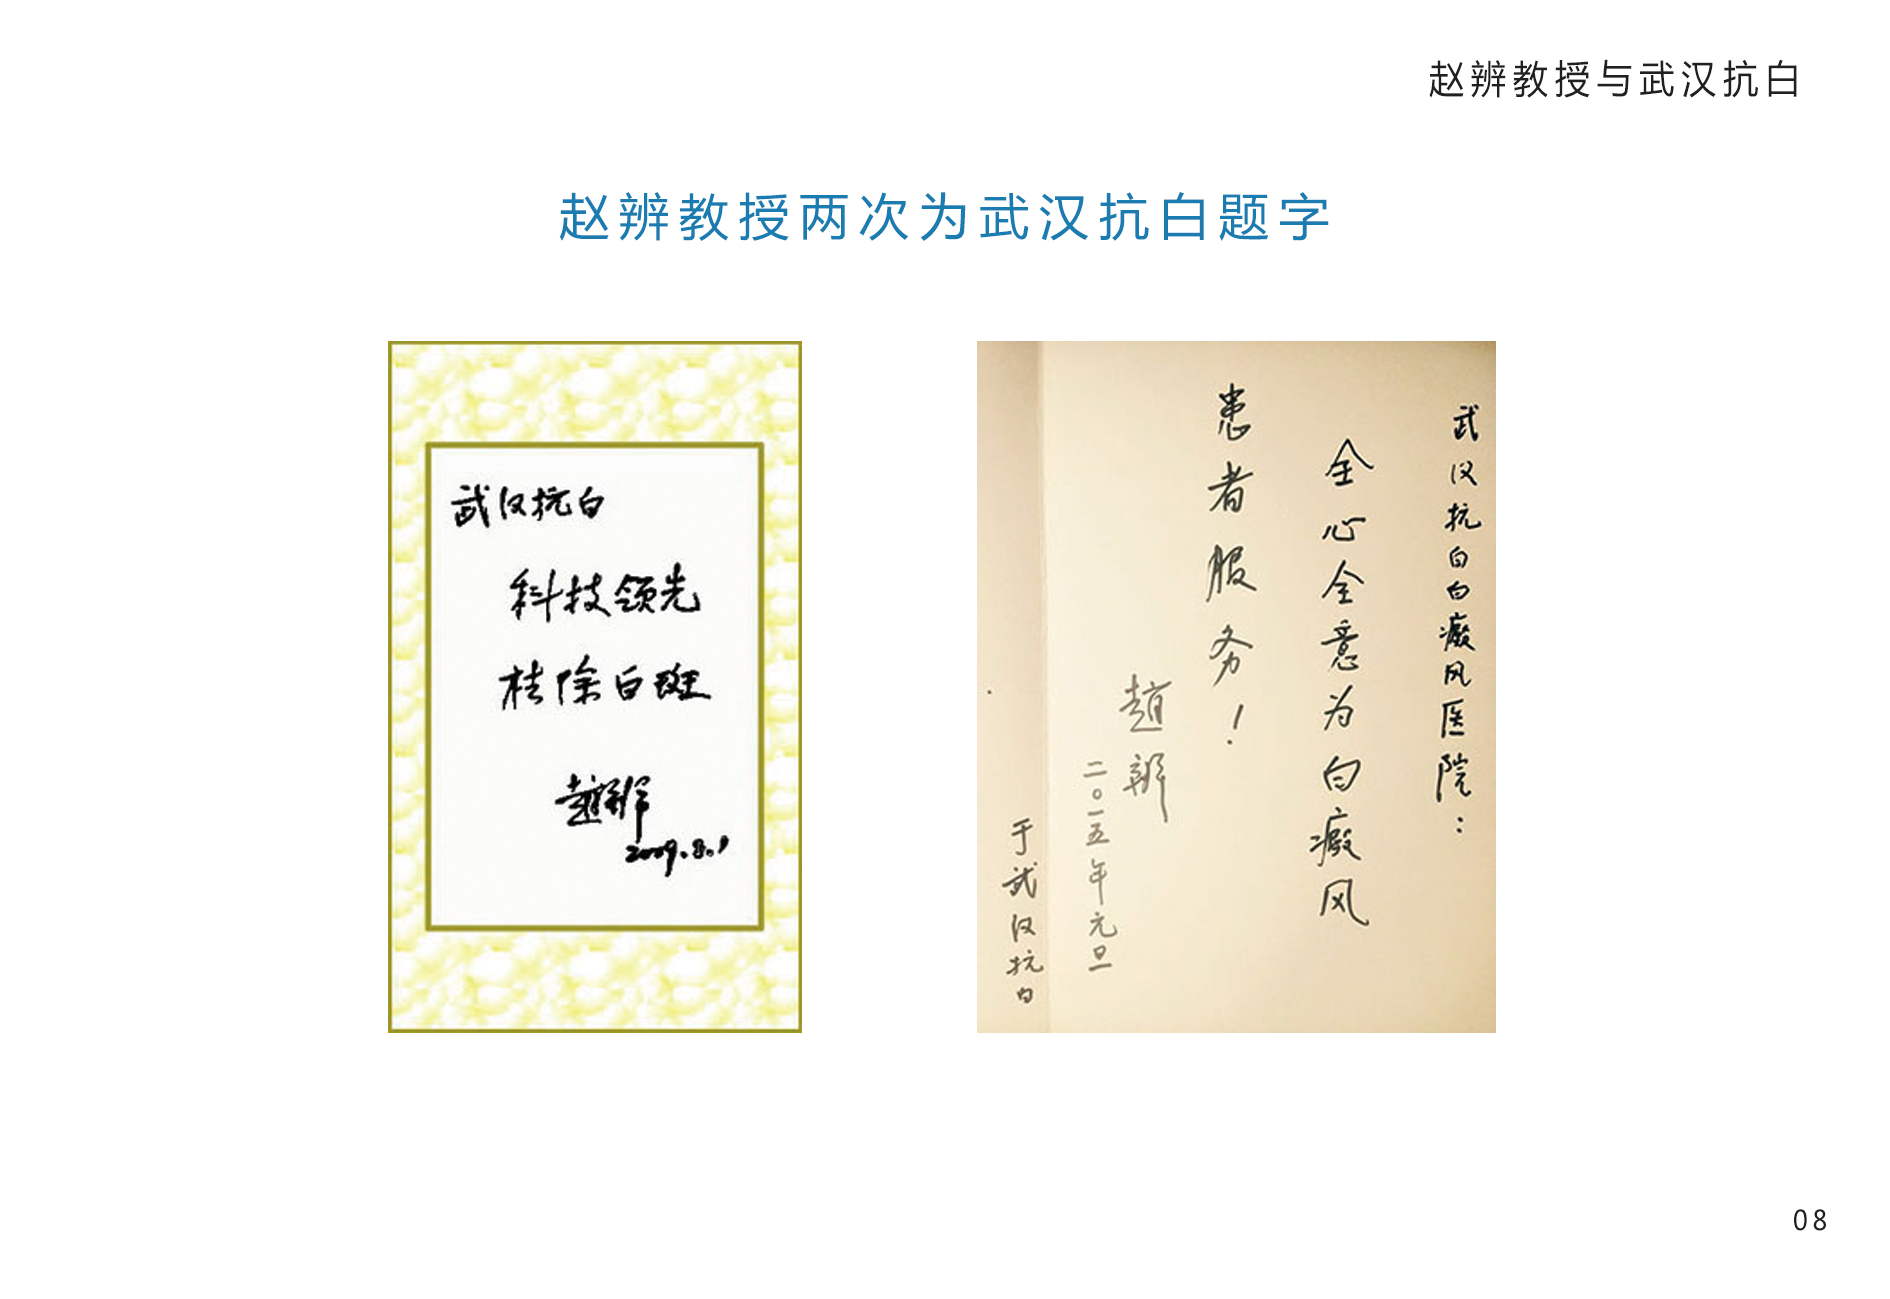 赵辨教授与武汉抗白
赵辨教授两次为武汉抗白题字
武汉抗白
科技领先
祛除白斑
趙辨
2009.8.1
武汉抗白白癜风医院：
全心全意为白癜风
患者服务！
趙辨
二〇一五年元旦
于武汉抗白
08